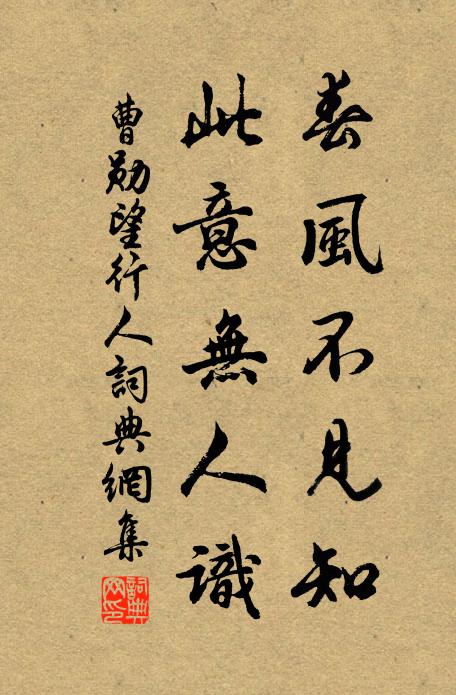 春風不見知
此意無人識
曹勛望行人詞典網集
詞典網印